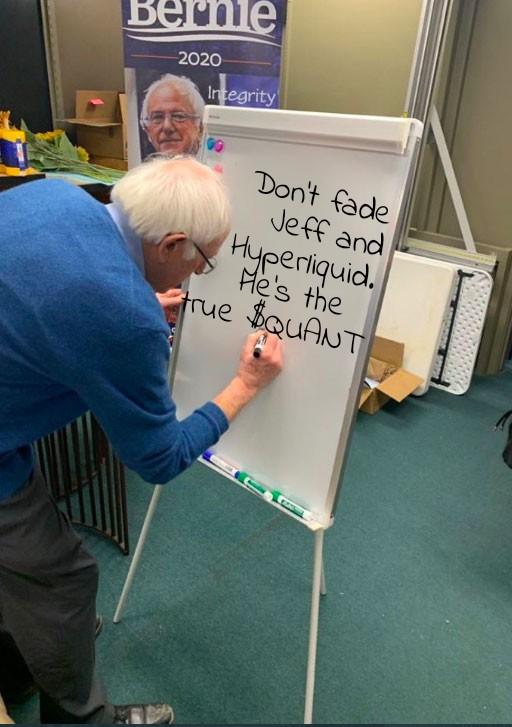 Bernie
2020
Integrity
Don't fade
Jeff and
Hyperliquid.
He's the
true $QUANT